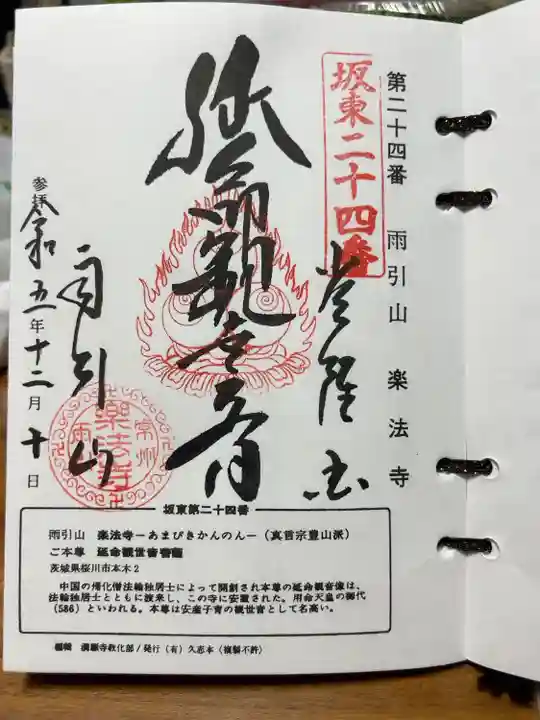 第二十四番　雨引山　楽法寺
坂東二十四番
常陸国
延命観世音
雨引山
参拝 令和五年十二月十日
常州
楽法寺
雨
坂東第二十四番
雨引山　楽法寺－あまびきかんのん－（真言宗豊山派）
ご本尊　延命観世音菩薩
茨城県桜川市本木２
中国の帰化僧法輪独居士によって開創され本尊の延命観音像は、
法輪独居士とともに渡来し、この寺に安置された。用命天皇の御代
（586）といわれる。本尊は安産子育の観世音として名高い。
編輯　満願寺教化部／発行（有）久志本（複製不許）